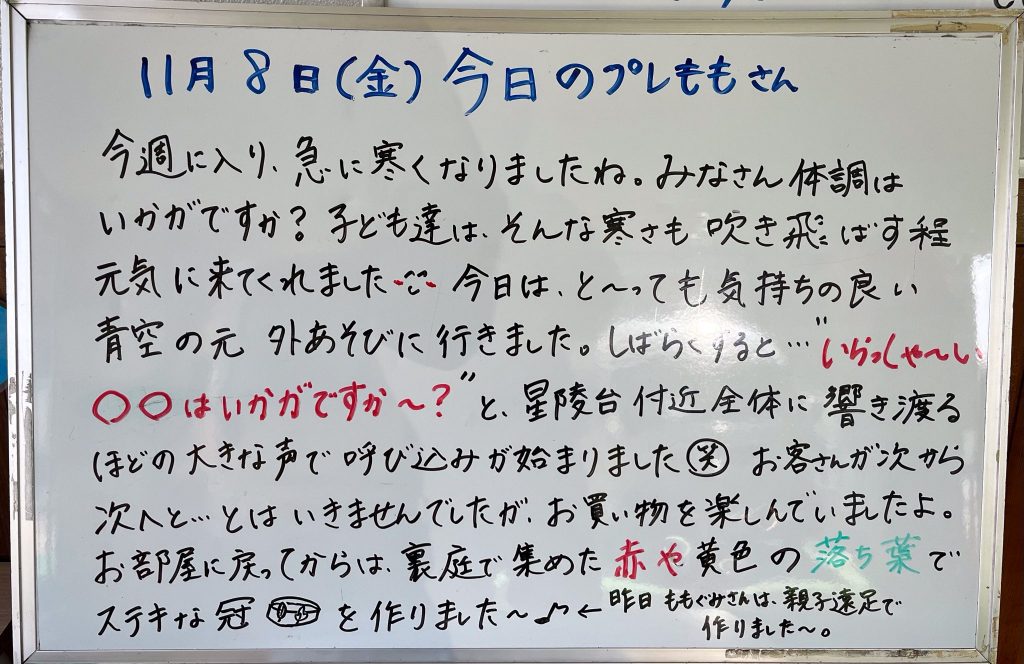 11月8日(金)今日のプレももさん
今週に入り、急に寒くなりましたね。みなさん体調は
いかがですか?子ども達は、そんな寒さも吹き飛ばす程
元気に来てくれました 今日は、と〜っても気持ちの良い
青空の元 外あそびに行きました。しばらくすると…"いらっしゃ〜い
○○はいかがですか〜?"と、星陵台付近全体に響き渡る
ほどの大きな声で呼び込みが始まりました(笑) お客さんが次から
次へと…とはいきませんでしたが、お買い物を楽しんでいましたよ。
お部屋に戻ってからは、裏庭で集めた赤や黄色の落ち葉で
ステキな冠 を作りました〜♪ ←昨日ももぐみさんは、親子遠足で
作りました〜。